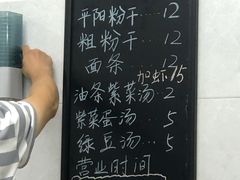 平阳粉干…12
粗粉干…12
面条…12
加虾15
油条紫菜汤…2
紫菜蛋汤…5
绿豆汤…5
营业时间